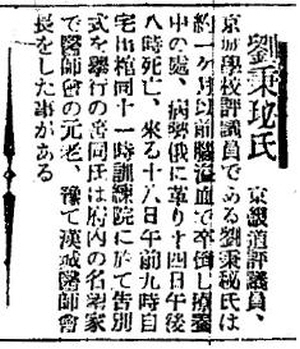 劉秉珌氏
京畿道評議員、
京城學校評議員である劉秉珌氏は
約一ケ月以前腦溢血で卒倒し療養
中の處、病勢俄に革り十四日午後
八時死亡、來る十八日午前九時自
宅出棺同十一時訓練院に於て告別
式を擧行の筈同氏は府內の名望家
で醫師會の元老、豫て漢城醫師會
長をした事がある